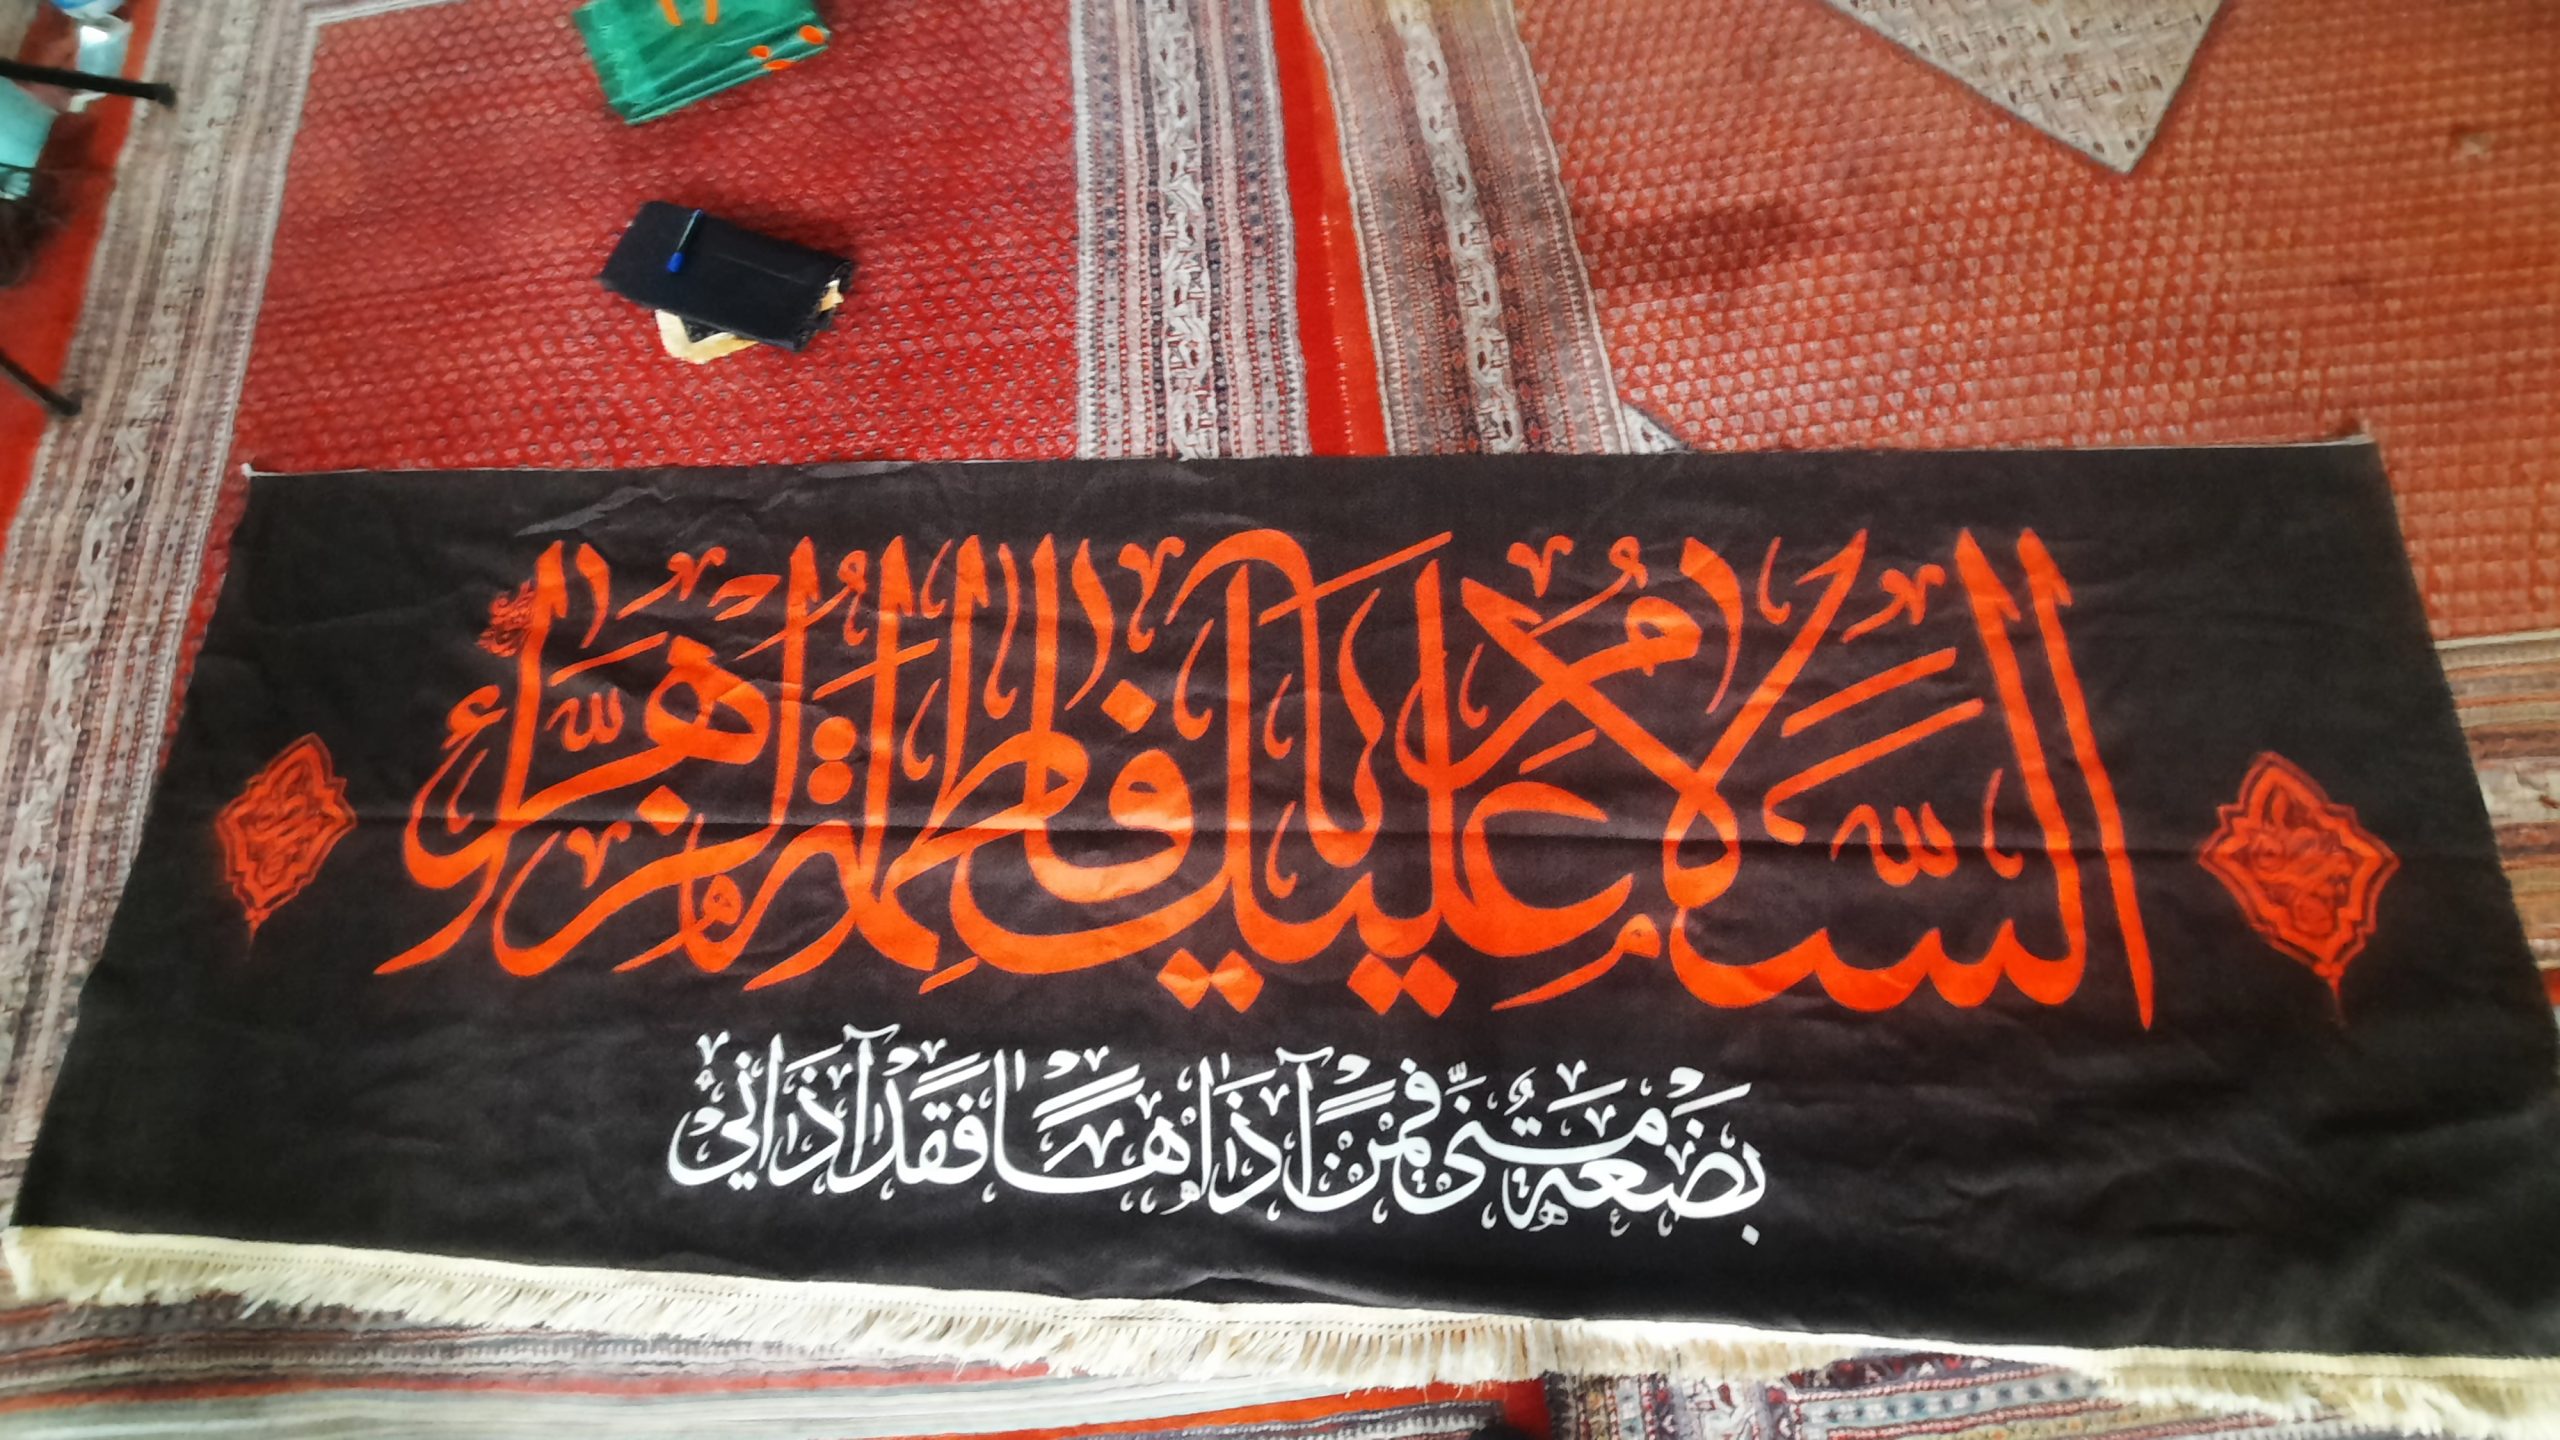 السَّلَامُ عَلَيْكِ يَا فَاطِمَةُ الزَّهْرَاءُ
بَضْعَةٌ مِنِّي فَمَنْ آذَاهَا فَقَدْ آذَانِي